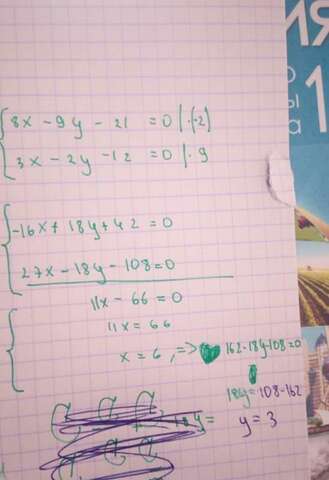 ИЯ
1
8x - 9y - 21 = 0 | ·(-2)
3x - 2y - 12 = 0 | · 9
-16x + 18y + 42 = 0
27x - 18y - 108 = 0
11x - 66 = 0
11x = 66
x = 6, => 162 - 18y - 108 = 0
18y = 108 - 162
y = 3